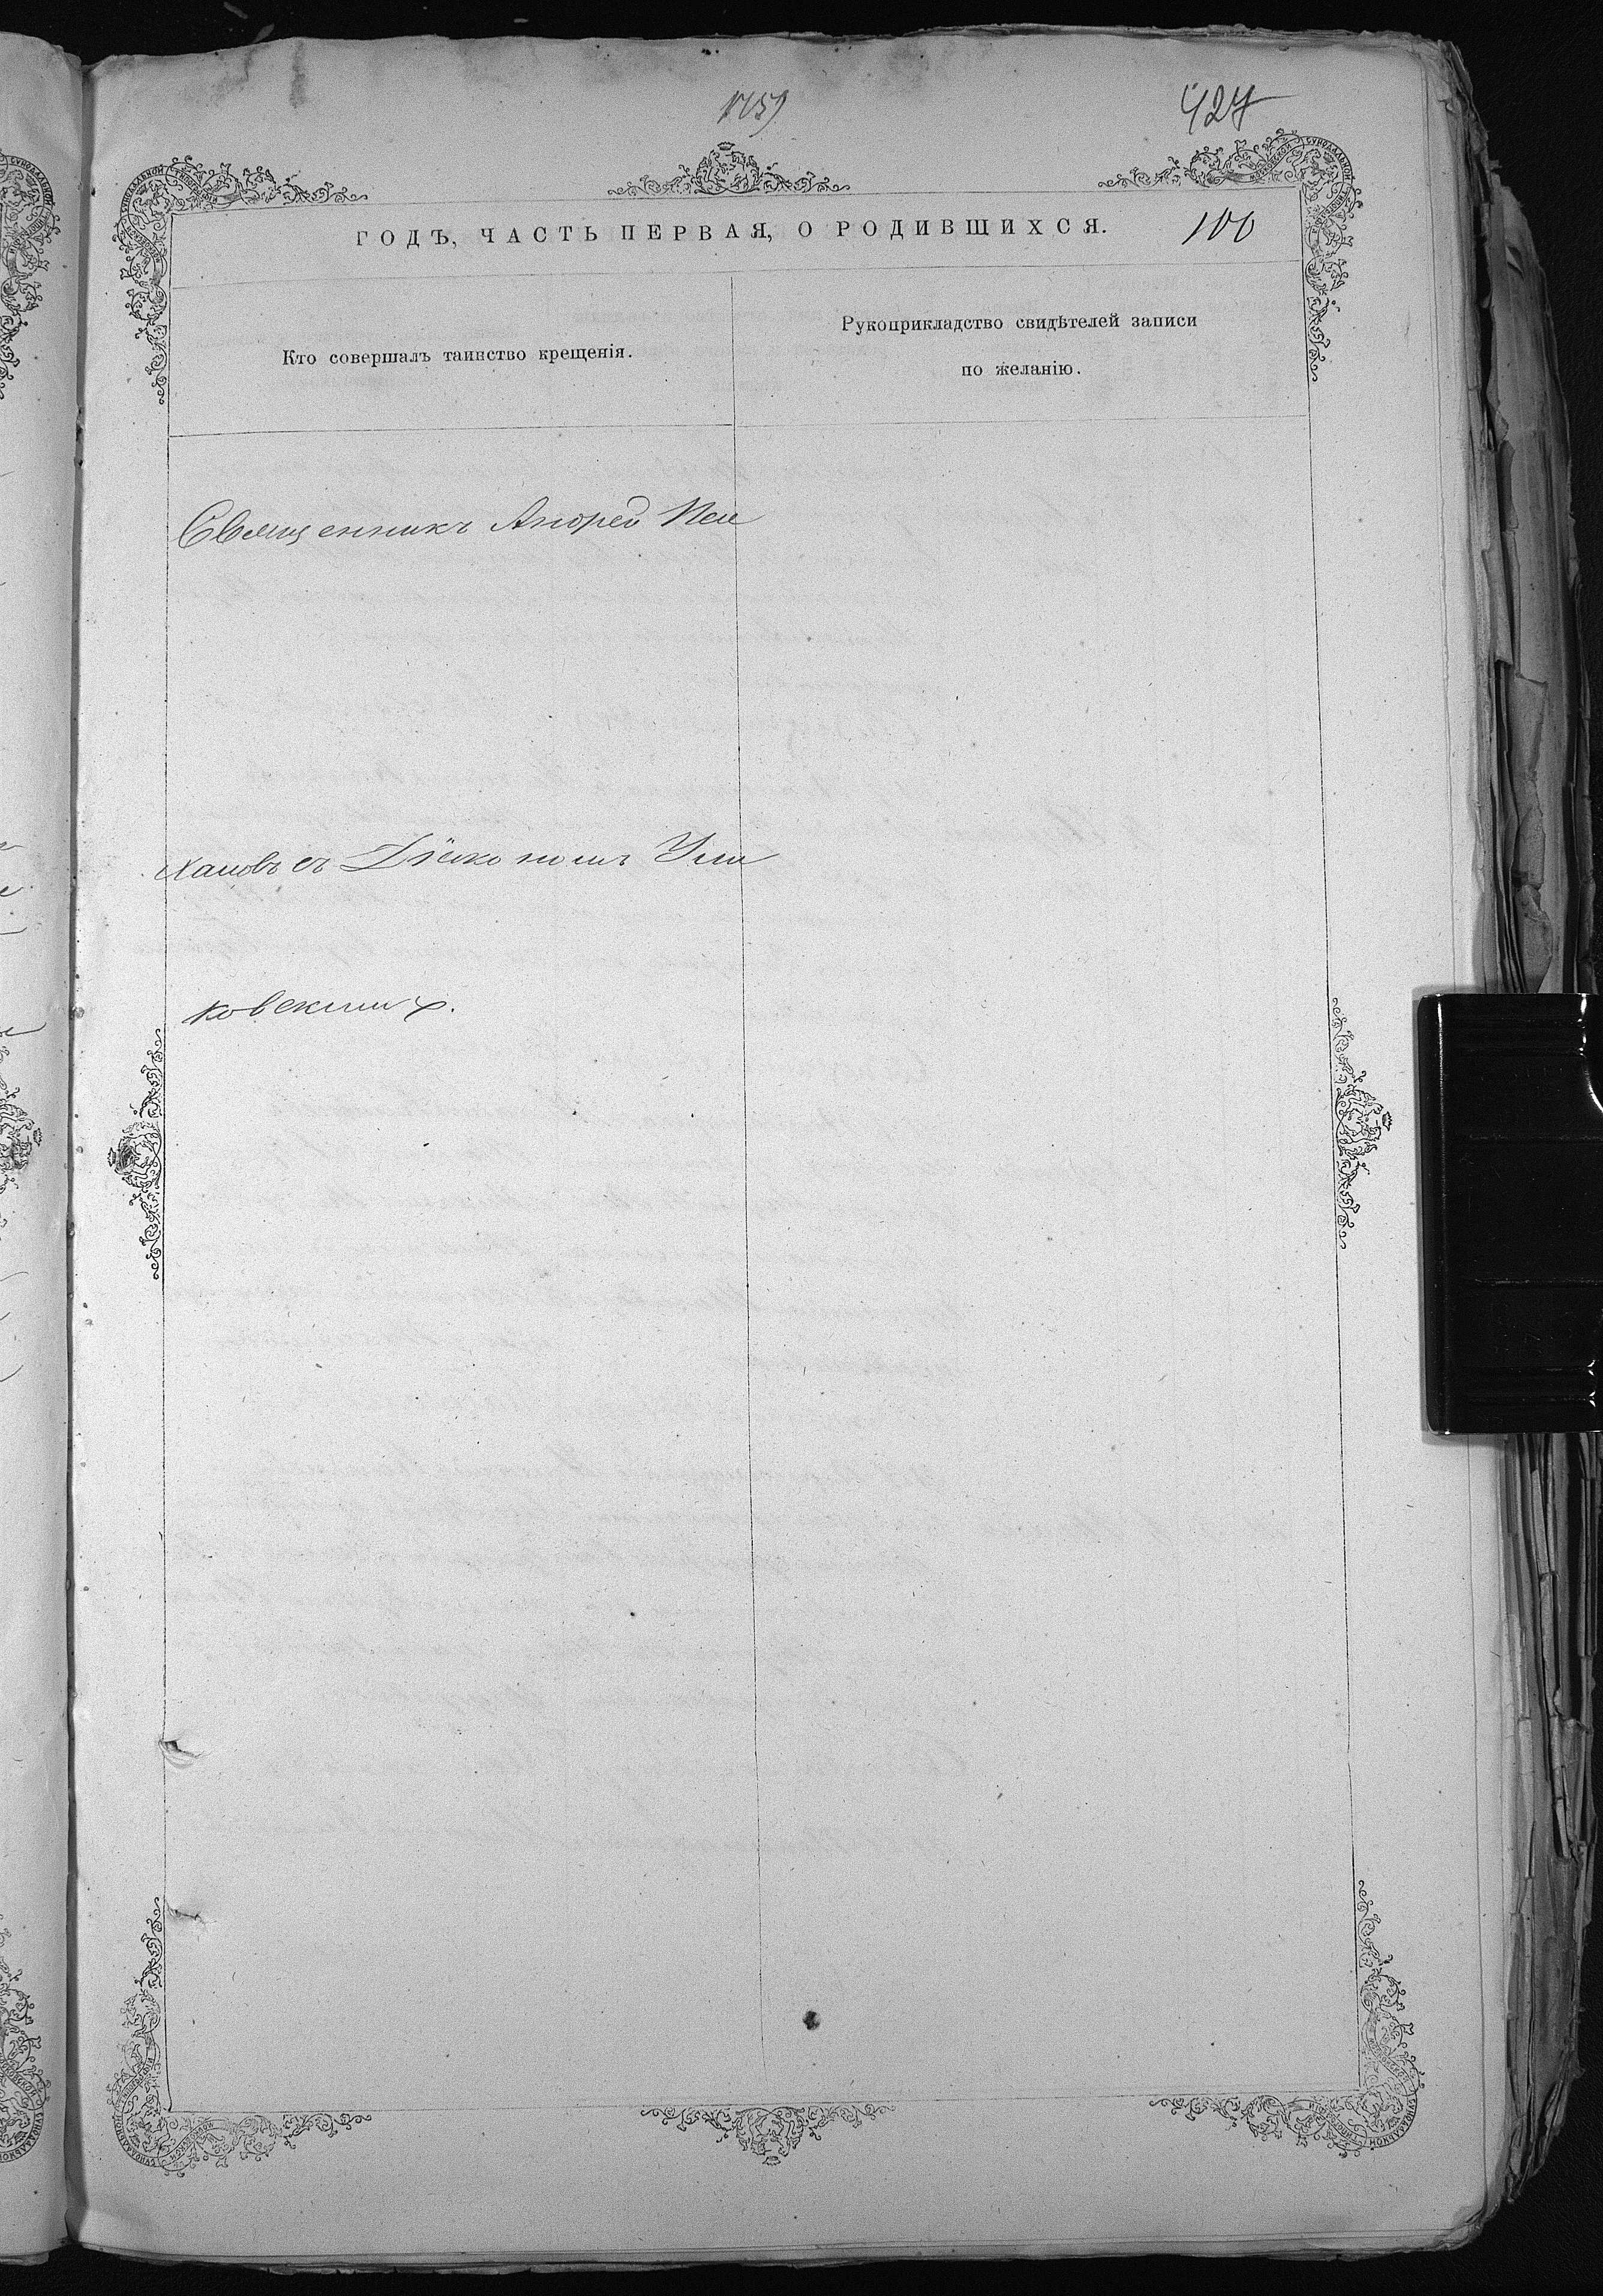 427
ГОДЪ, ЧАСТЬ ПЕРВАЯ, О РОДИВШИХСЯ. 100
Кто совершалъ таинство крещенія.
Рукоприкладство свидѣтелей записи
по желанію.
Священникъ Андрей
съ Діакономъ
ковскимъ.